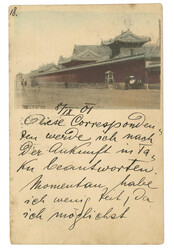 18.
8/IX 01
Diese Corresponden-
ten werde ich nach
Der Ankunft in Ta.
Ku beantworten.
Momentan habe
ich wenig Zeit, da
ich möglichst